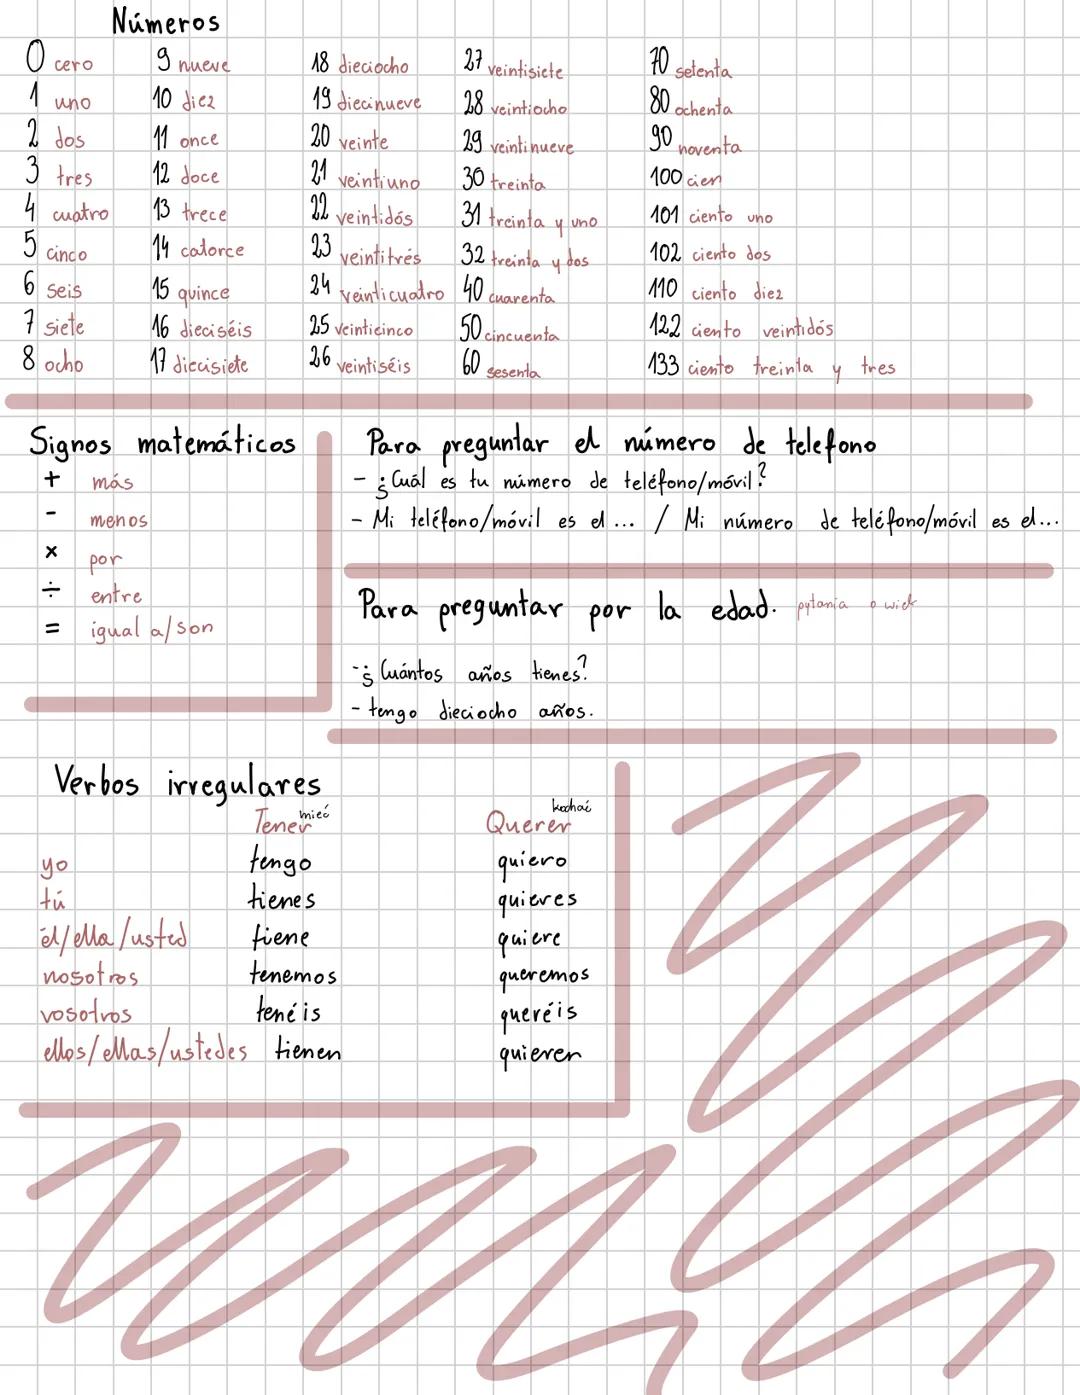 Números
0 cero 9 nueve 18 dieciocho 27 veintisiete 70 setenta
1 uno 10 diez 19 diecinueve 28 veintiocho 80 ochenta
2 dos 11 once 20 veinte 29 veintinueve 90 noventa
3 tres 12 doce 21 veintiuno 30 treinta 100 cien
4 cuatro 13 trece 22 veintidós 31 treinta y uno 101 ciento uno
5 cinco 14 catorce 23 veintitrés 32 treinta y dos 102 ciento dos
6 seis 15 quince 24 veinticuatro 40 cuarenta 110 ciento diez
7 siete 16 dieciséis 25 veinticinco 50 cincuenta 122 ciento veintidós
8 ocho 17 diecisiete 26 veintiséis 60 sesenta 133 ciento treinta y tres
Signos matemáticos
+ más
- menos
× por
÷ entre
= igual a/son
Para preguntar el número de telefono
- ¿Cuál es tu número de teléfono/móvil?
- Mi teléfono/móvil es el ... / Mi número de teléfono/móvil es el...
Para preguntar por la edad. pytania o wiek
- ¿Cuántos años tienes?
- tengo dieciocho años.
Verbos irregulares
Tener mieć Querer kochać
yo tengo quiero
tú tienes quieres
él/ella/usted tiene quiere
nosotros tenemos queremos
vosotros tenéis queréis
ellos/ellas/ustedes tienen quieren